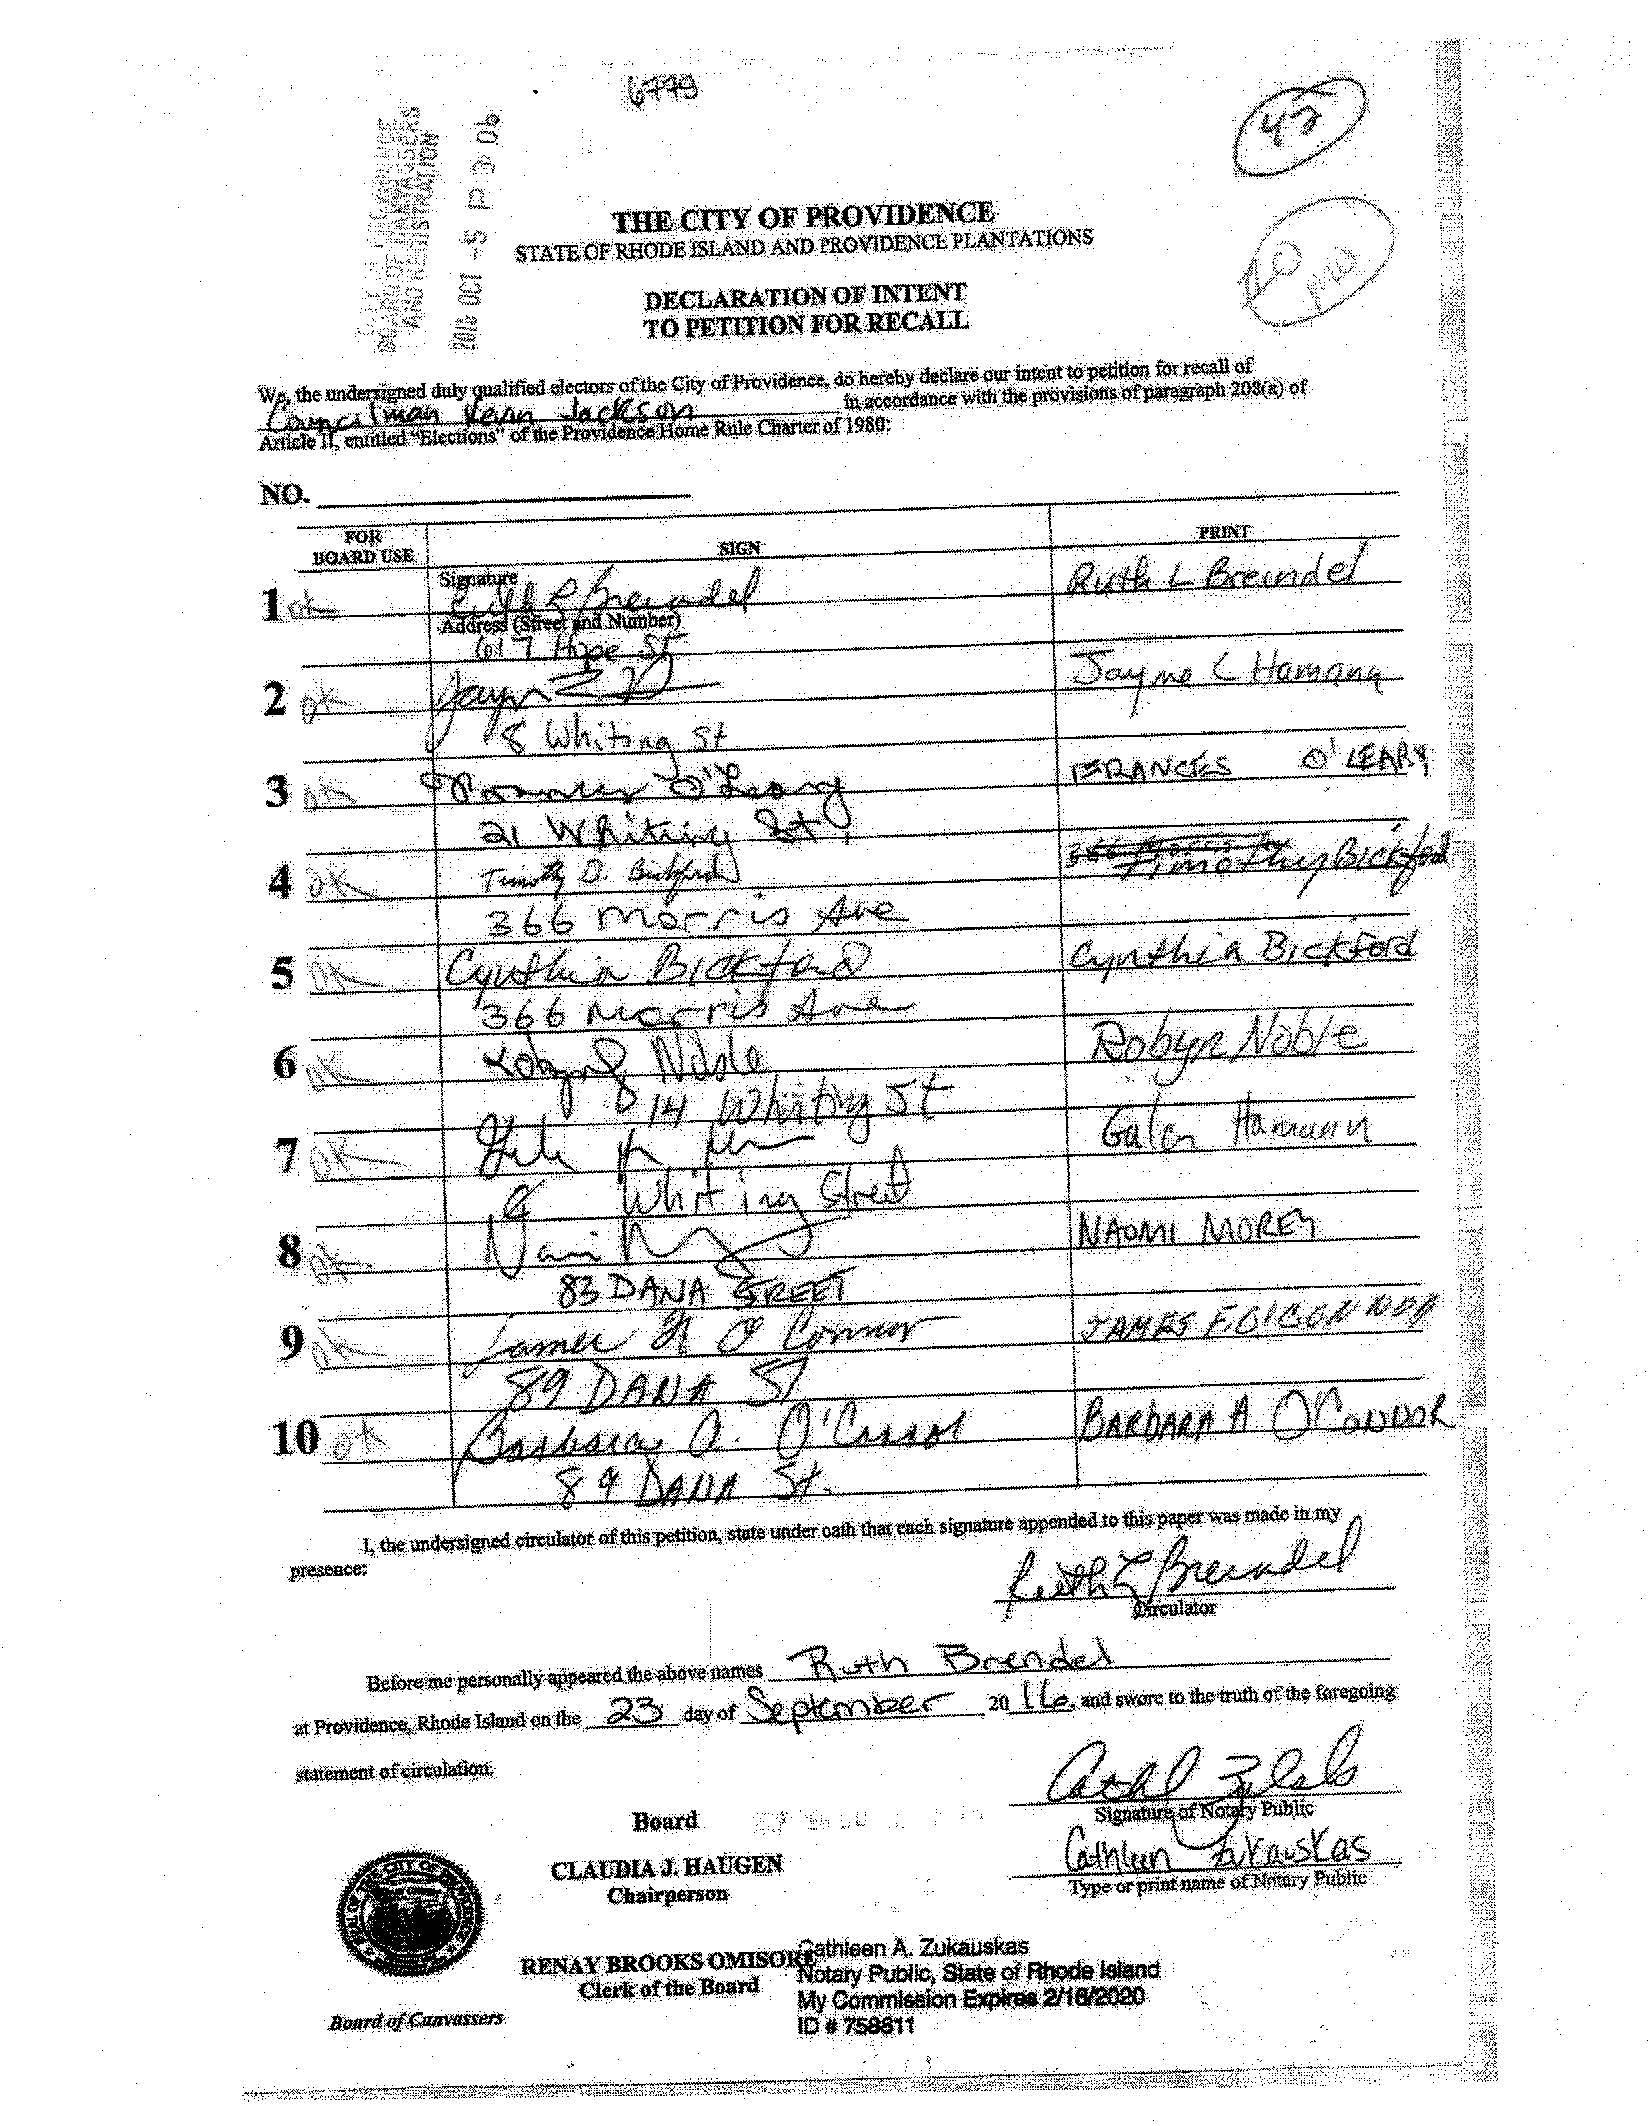 6779
42
AND REGISTRATION
2016 OCT -5 P 3:06
10
THE CITY OF PROVIDENCE
STATE OF RHODE ISLAND AND PROVIDENCE PLANTATIONS
DECLARATION OF INTENT
TO PETITION FOR RECALL
We, the undersigned duly qualified electors of the City of Providence, do hereby declare our intent to petition for recall of
Councilman Kevin Jackson in accordance with the provisions of paragraph 208(a) of
Article II, entitled "Elections" of the Providence Home Rule Charter of 1980:
NO.
FOR BOARD USE SIGN PRINT
1 OK Signature Ruth L Breindel Ruth L Breindel
Address (Street and Number)
617 Hope St
2 OK Jayme Jayme C Hamann
8 Whiting St
3 OK Frances O'Leary FRANCES O'LEARY
21 Whiting St.
4 OK Timothy D. Bickford Timothy Bickford
366 Morris Ave
5 OK Cynthia Bickford Cynthia Bickford
366 Morris Ave
6 OK Robyn Noble Robyn Noble
14 Whiting St
7 OK Galen Hamann
8 Whiting Street
8 OK Naomi NAOMI MOREY
83 DANA STREET
9 OK James F O'Connor JAMES F. O'CONNOR
89 DANA ST
10 OK Barbara A. O'Connor BARBARA A O'CONNOR
89 DANA St.
I, the undersigned circulator of this petition, state under oath that each signature appended to this paper was made in my
presence:
Ruth L Breindel
Circulator
Before me personally appeared the above names Ruth Brendel
at Providence, Rhode Island on the 23 day of September 2016, and swore to the truth of the foregoing
statement of circulation.
Signature of Notary Public
Cathleen Zukauskas
Type or print name of Notary Public
Board
CLAUDIA J. HAUGEN
Chairperson
RENAY BROOKS OMISORE
Clerk of the Board
Board of Canvassers
Cathleen A. Zukauskas
Notary Public, State of Rhode Island
My Commission Expires 2/16/2020
ID # 758611